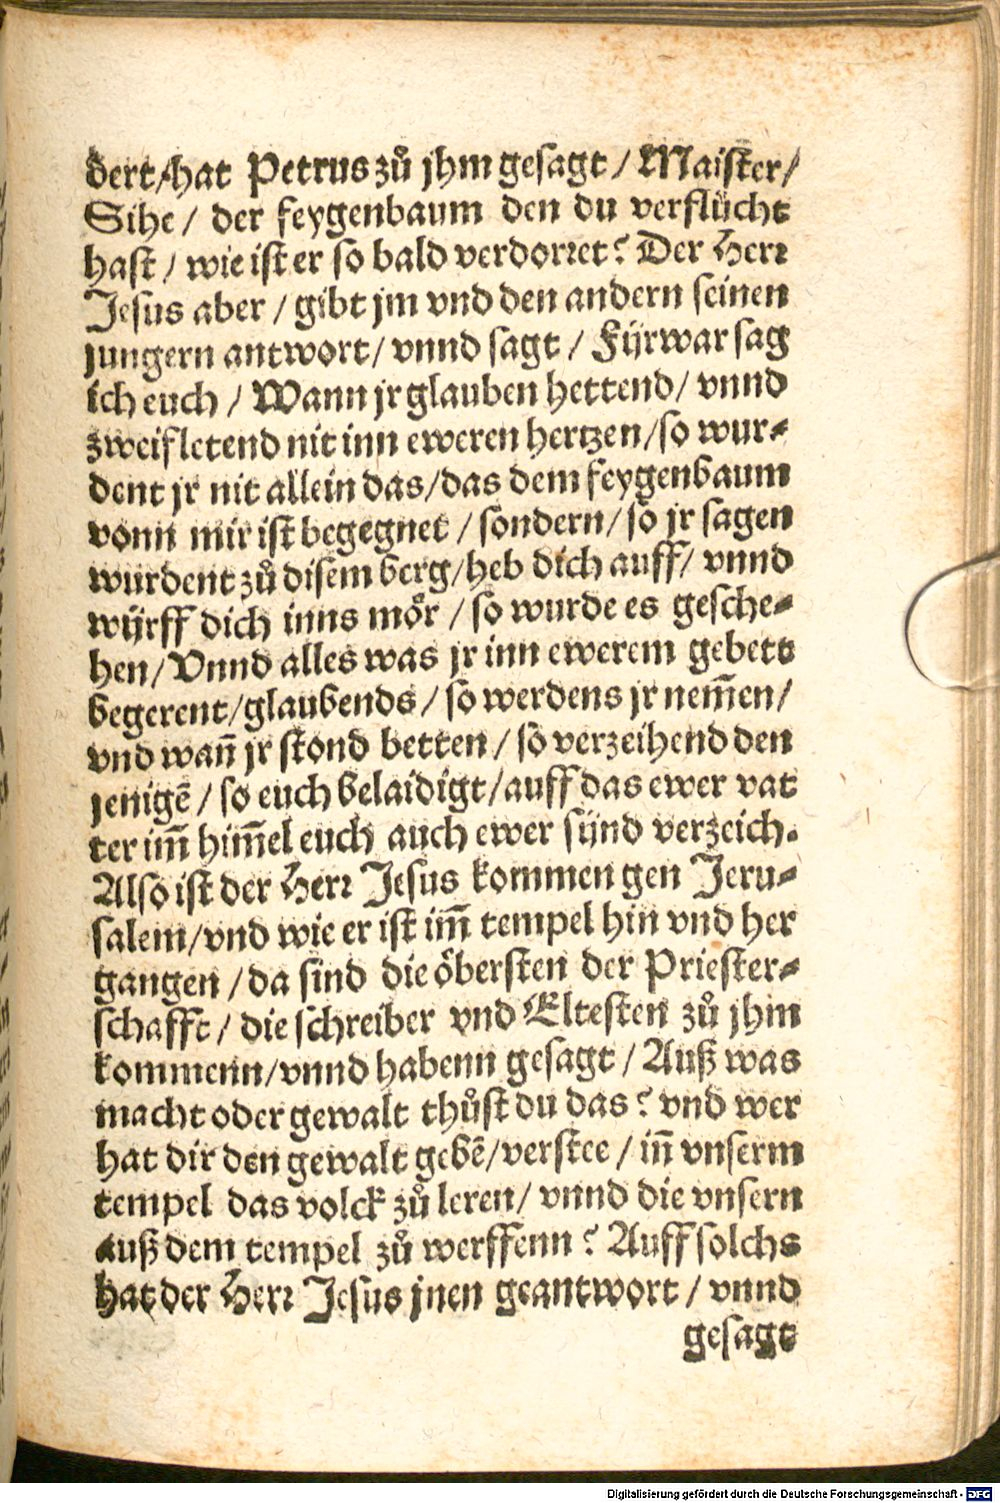 dert/hat Petrus zů jhm gesagt / Maister/
Sihe / der feygenbaum den du verflůcht
hast / wie ist er so bald verdorret? Der Herr
Jesus aber / gibt jm vnd den andern seinen
jungern antwort/ vnnd sagt / Fürwar sag
ich euch / Wann jr glauben hettend/ vnnd
zweifletend nit inn eweren hertzen/so wur-
dent jr nit allein das/das dem feygenbaum
vonn mir ist begegnet / sondern/ so jr sagen
wurdent zů disem berg/heb dich auff/ vnnd
würff dich inns mör / so wurde es gesche-
hen/ Vnnd alles was jr inn ewerem gebett
begerent/glaubends / so werdens jr nem̃en/
vnd wañ jr stond betten / so verzeihend den
jenigẽ / so euch belaidigt/auff das ewer vat
ter im̃ him̃el euch auch ewer sünd verzeich.
Also ist der Herr Jesus kommen gen Jeru-
salem/vnd wie er ist im̃ tempel hin vnd her
gangen / da sind die öbersten der Priester-
schafft / die schreiber vnd Eltesten zů jhm
kommenn/vnnd habenn gesagt / Auß was
macht oder gewalt thůst du das? vnd wer
hat dir den gewalt gebẽ/verstee / iñ vnserm
tempel das volck zů leren/ vnnd die vnsern
auß dem tempel zů werffenn? Auff solchs
hat der Herr Jesus jnen geantwort / vnnd
gesagt
Digitalisierung gefördert durch die Deutsche Forschungsgemeinschaft - DFG